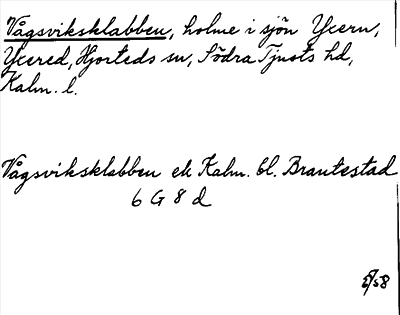 Vågsviksklabben, holme i sjön Ycern,
Ycered, Hjorteds sn, Södra Tjusts hd,
Kalm. l.
Vågsviksklabben ek Kalm. bl. Brantestad
6 G 8 d